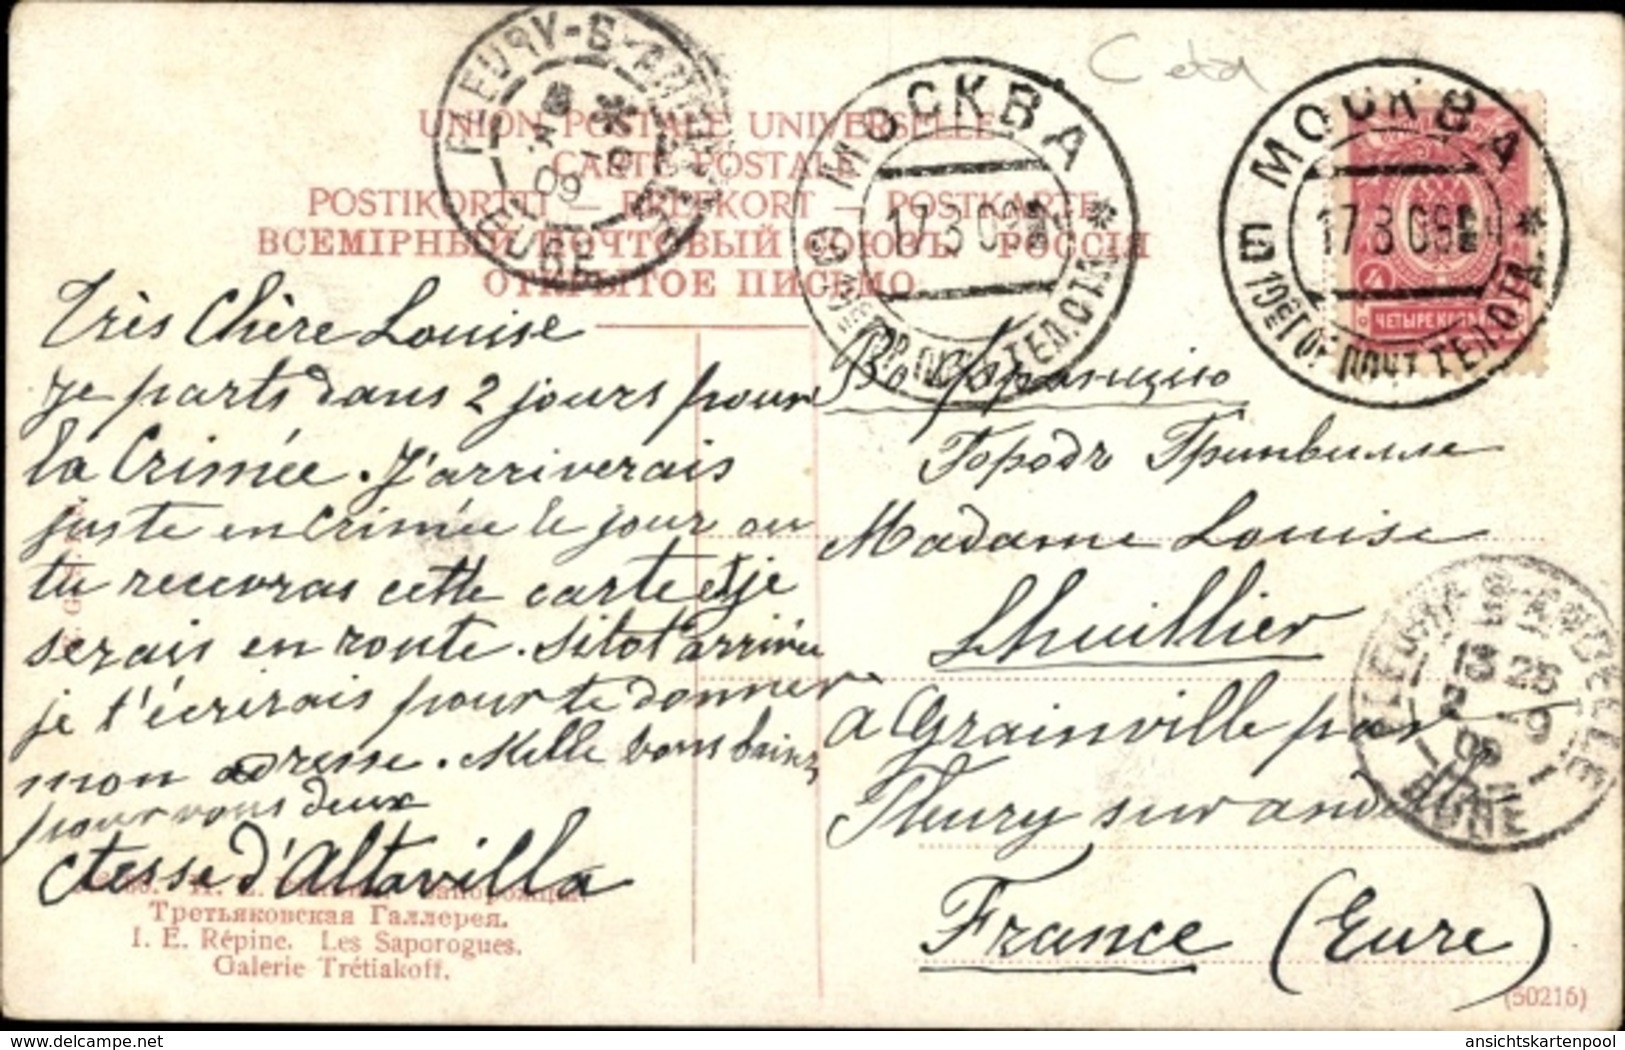 UNION POSTALE UNIVERSELLE
CARTE POSTALE
POSTIKORTTI — BREFKORT — POSTKARTE
ВСЕМІРНЫЙ ПОЧТОВЫЙ СОЮЗЪ. РОССІЯ
ОТКРЫТОЕ ПИСЬМО
МОСКВА
17 3 09
МОСКВА
17 3 09
ЧЕТЫРЕ КОП
Très Chère Louise
je parts dans 2 jours pour
la Crimée. J'arriverais
juste en Crimée le jour ou
tu recevras cette carte et je
serais en route. Sitot arrivée
je t'écrirais pour te donner
mon adresse. Mille bons baisers
pour vous deux
Ctesse d'Altavilla
Во Францію
Городъ Гринвилле
Madame Louise
Lhuillier
à Grainville par
Fleury sur andelle
France (Eure)
FLEURY-S-ANDELLE
EURE
FLEURY-S-ANDELLE
13 25
EURE
Третьяковская Галлерея.
I. E. Répine. Les Saporogues.
Galerie Trétiakoff.
(50216)
ansichtskartenpool